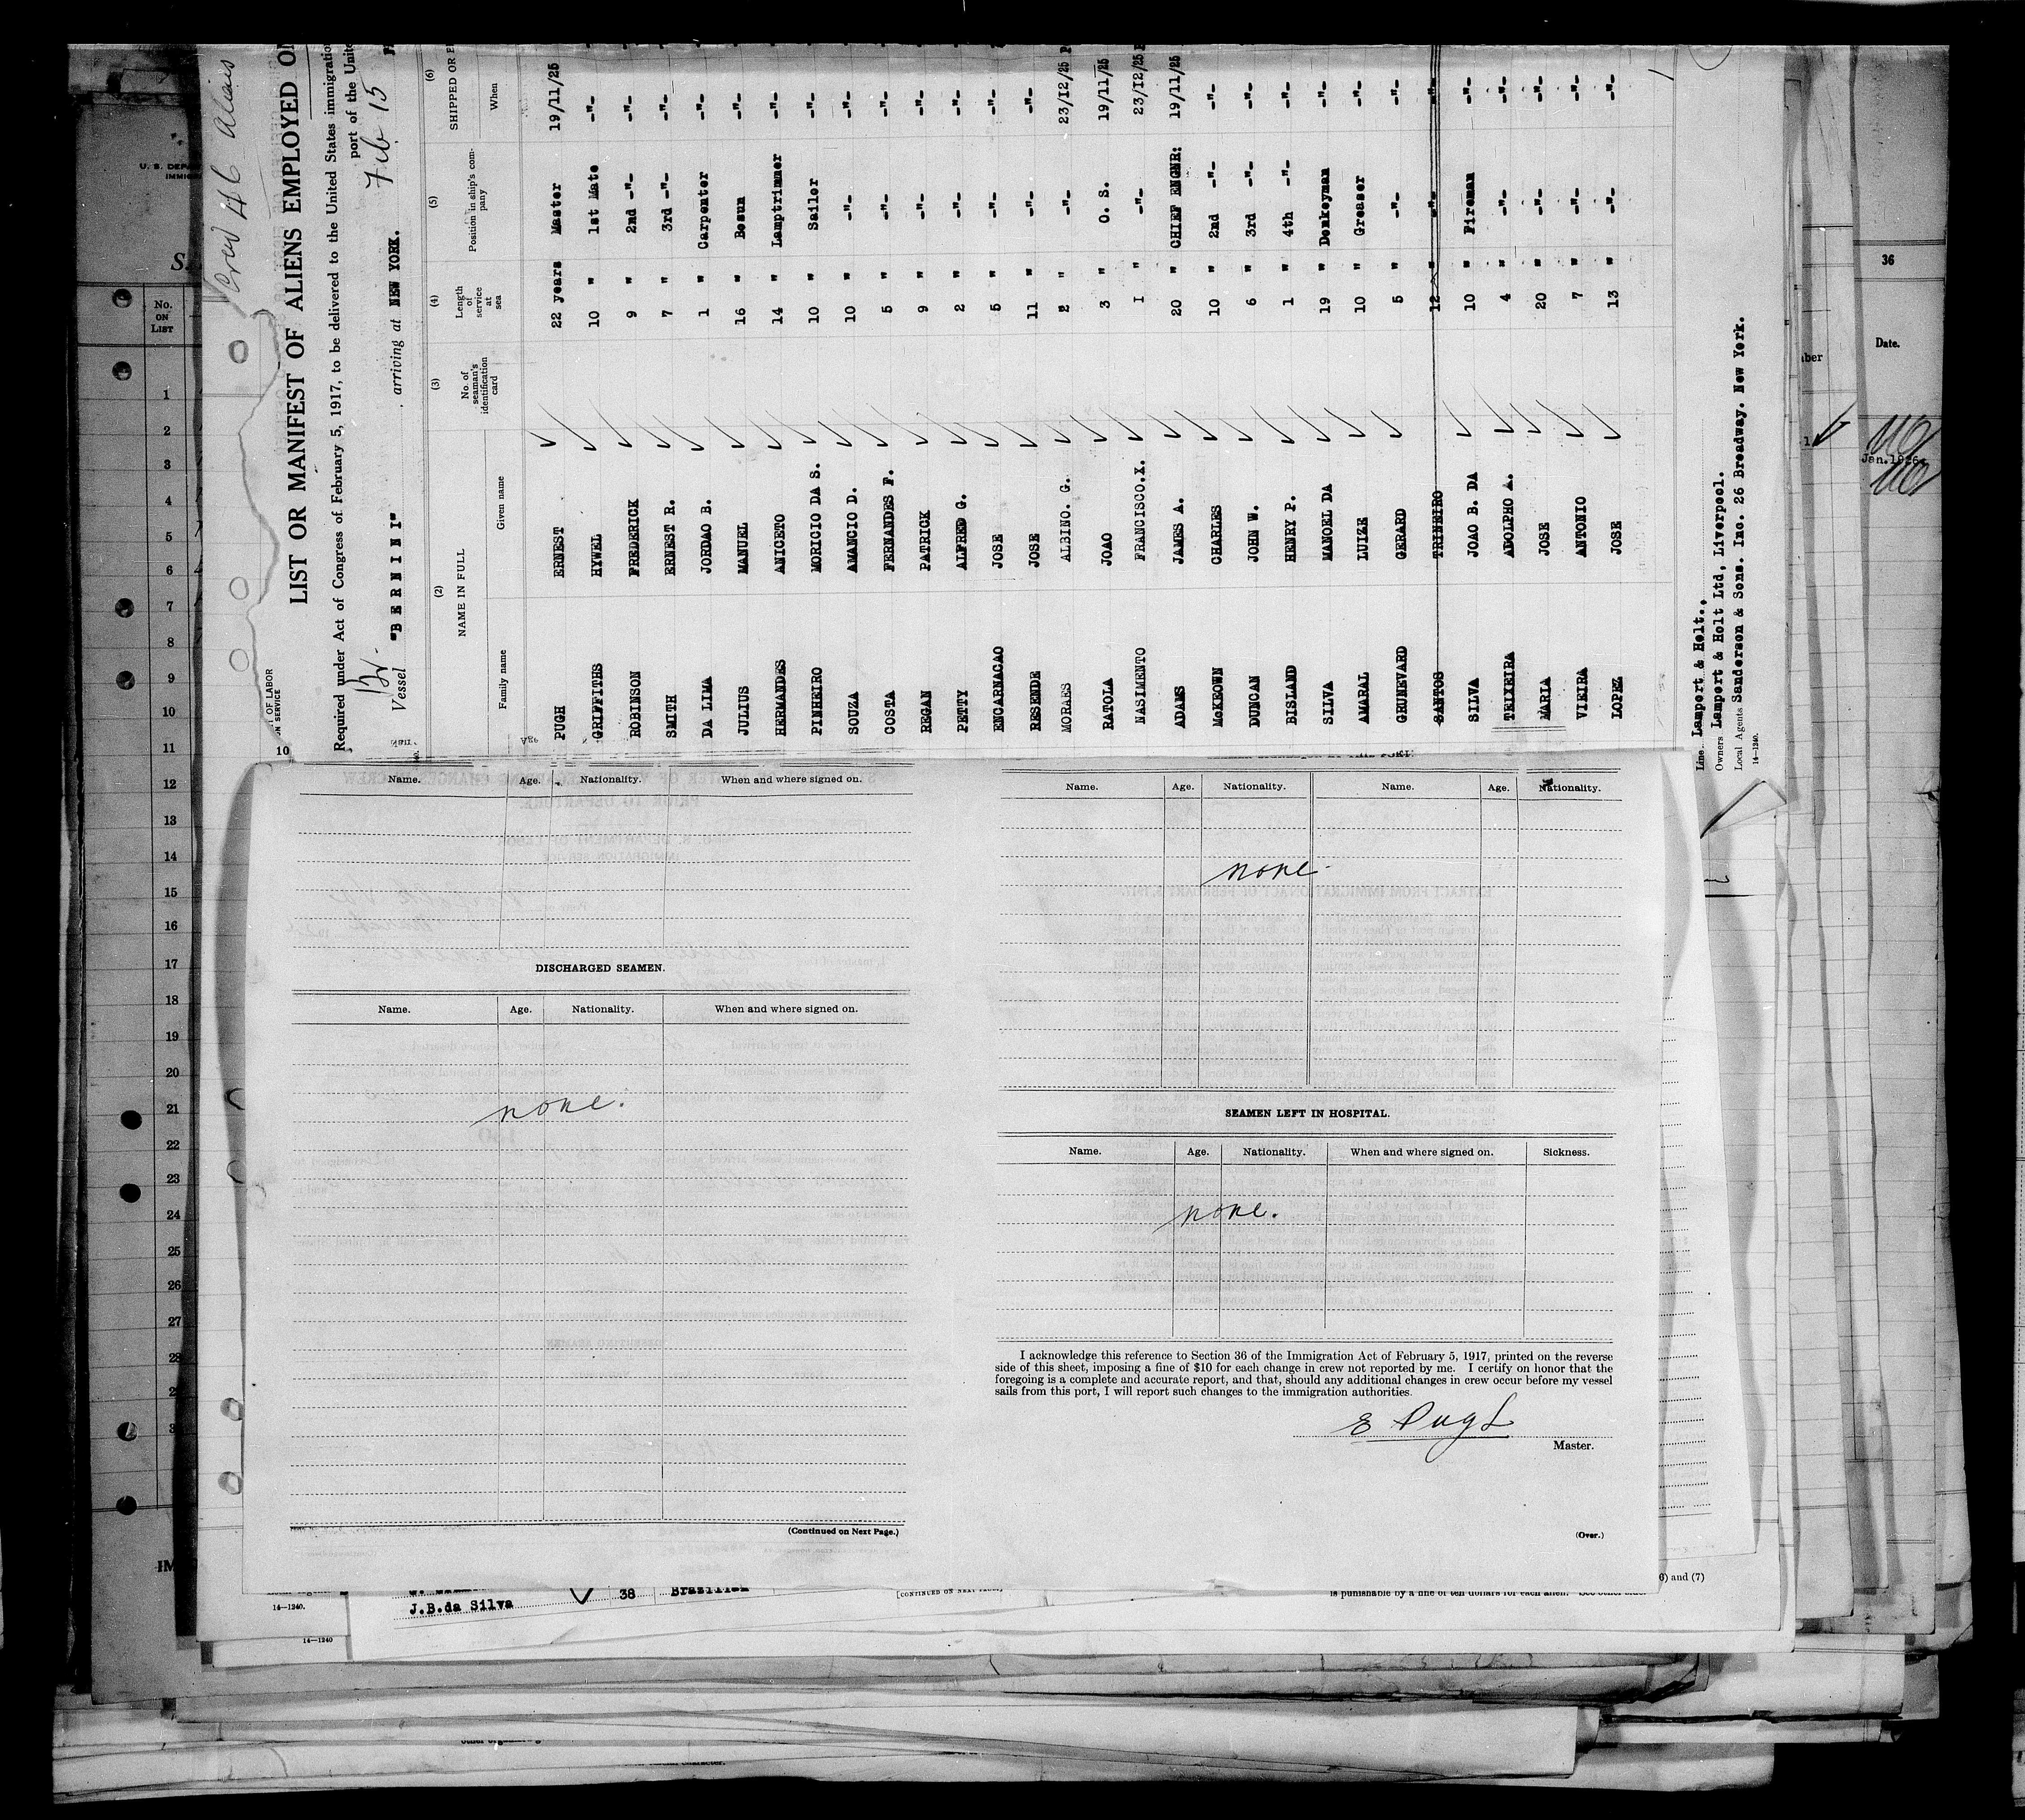 Crew 46 Aliens
LIST OR MANIFEST OF ALIENS EMPLOYED ON
Required under Act of Congress of February 5, 1917, to be delivered to the United States immigration
port of the Unite
Br.
Vessel "BERNINI" arriving at NEW YORK. Feb 15
(2) (3) (4) (5) (6)
NAME IN FULL
Family name Given name
No. of seaman's identification card
Length of service at sea
Position in ship's company
SHIPPED OR E
When
PUGH ERNEST 22 years Master 19/11/25
GRIFFITHS HYWEL 10 " 1st Mate -"-
ROBINSON FREDERICK 9 " 2nd -"- -"-
SMITH ERNEST R. 7 " 3rd -"- -"-
DA LIMA JORDAO B. 1 " Carpenter -"-
JULIUS MANUEL 16 " Bosun -"-
HERMANDES ANICETO 14 " Lamptrimmer -"-
PINHEIRO MORICIO DA S. 10 " Sailor -"-
SOUZA AMANCIO D. 10 " -"- -"-
COSTA FERNANDES F. 5 " -"- -"-
REGAN PATRICK 9 " -"- -"-
PETTY ALFRED G. 2 " -"- -"-
ENCARNACAO JOSE 5 " -"- -"-
RESENDE JOSE 11 " -"- -"-
MORAES ALBINO. G. 2 " -"- 23/12/25
RATOLA JOAO 3 " O. S. 19/11/25
NASIMENTO FRANCISCO.X. I " -"- 23/I2/25
ADAMS JAMES A. 20 " CHIEF ENGNR: 19/11/25
McKEOWN CHARLES 10 " 2nd -"- -"-
DUNCAN JOHN W. 6 " 3rd -"- -"-
BISLAND HENRY P. 1 " 4th -"- -"-
SILVA MANOEL DA 19 " Donkeyman -"-
AMARAL LUIZE 10 " Greaser -"-
GRUNEVARD GERARD 5 " -"- -"-
SANTOS TRINEIRO 12 " -"- -"-
SILVA JOAO B. DA 10 " Fireman -"-
TEIXEIRA ADOLPHO A. 4 " -"- -"-
MARIA JOSE 20 " -"- -"-
VIEIRA ANTONIO 7 " -"- -"-
LOPEZ JOSE 13 " -"- -"-
Line Lamport & Holt.,
Owners Lamport & Holt Ltd, Liverpool.
Local Agents Sanderson & Sons. Inc. 26 Broadway. New York.
14-1240.
OF LABOR
ON SERVICE
U. S. DEPA
IMMIG
No. ON LIST
1
2
3
4
5
6
7
8
9
10
11
12
13
14
15
16
17
18
19
20
21
22
23
24
25
26
27
28
36
Date.
Jan. 1926
Name. Age. Nationality. When and where signed on.
DISCHARGED SEAMEN.
Name. Age. Nationality. When and where signed on.
none.
(Continued on Next Page.)
Name. Age. Nationality. Name. Age. Nationality.
none
SEAMEN LEFT IN HOSPITAL.
Name. Age. Nationality. When and where signed on. Sickness.
none.
I acknowledge this reference to Section 36 of the Immigration Act of February 5, 1917, printed on the reverse
side of this sheet, imposing a fine of $10 for each change in crew not reported by me. I certify on honor that the
foregoing is a complete and accurate report, and that, should any additional changes in crew occur before my vessel
sails from this port, I will report such changes to the immigration authorities.
E Pugh
Master.
(Over.)
J.B.da Silva 38 Brazilian
[CONTINUED ON NEXT PAGE]
is punishable by a fine of ten dollars for each alien.
6) and (7)
14-1240.
14-1240